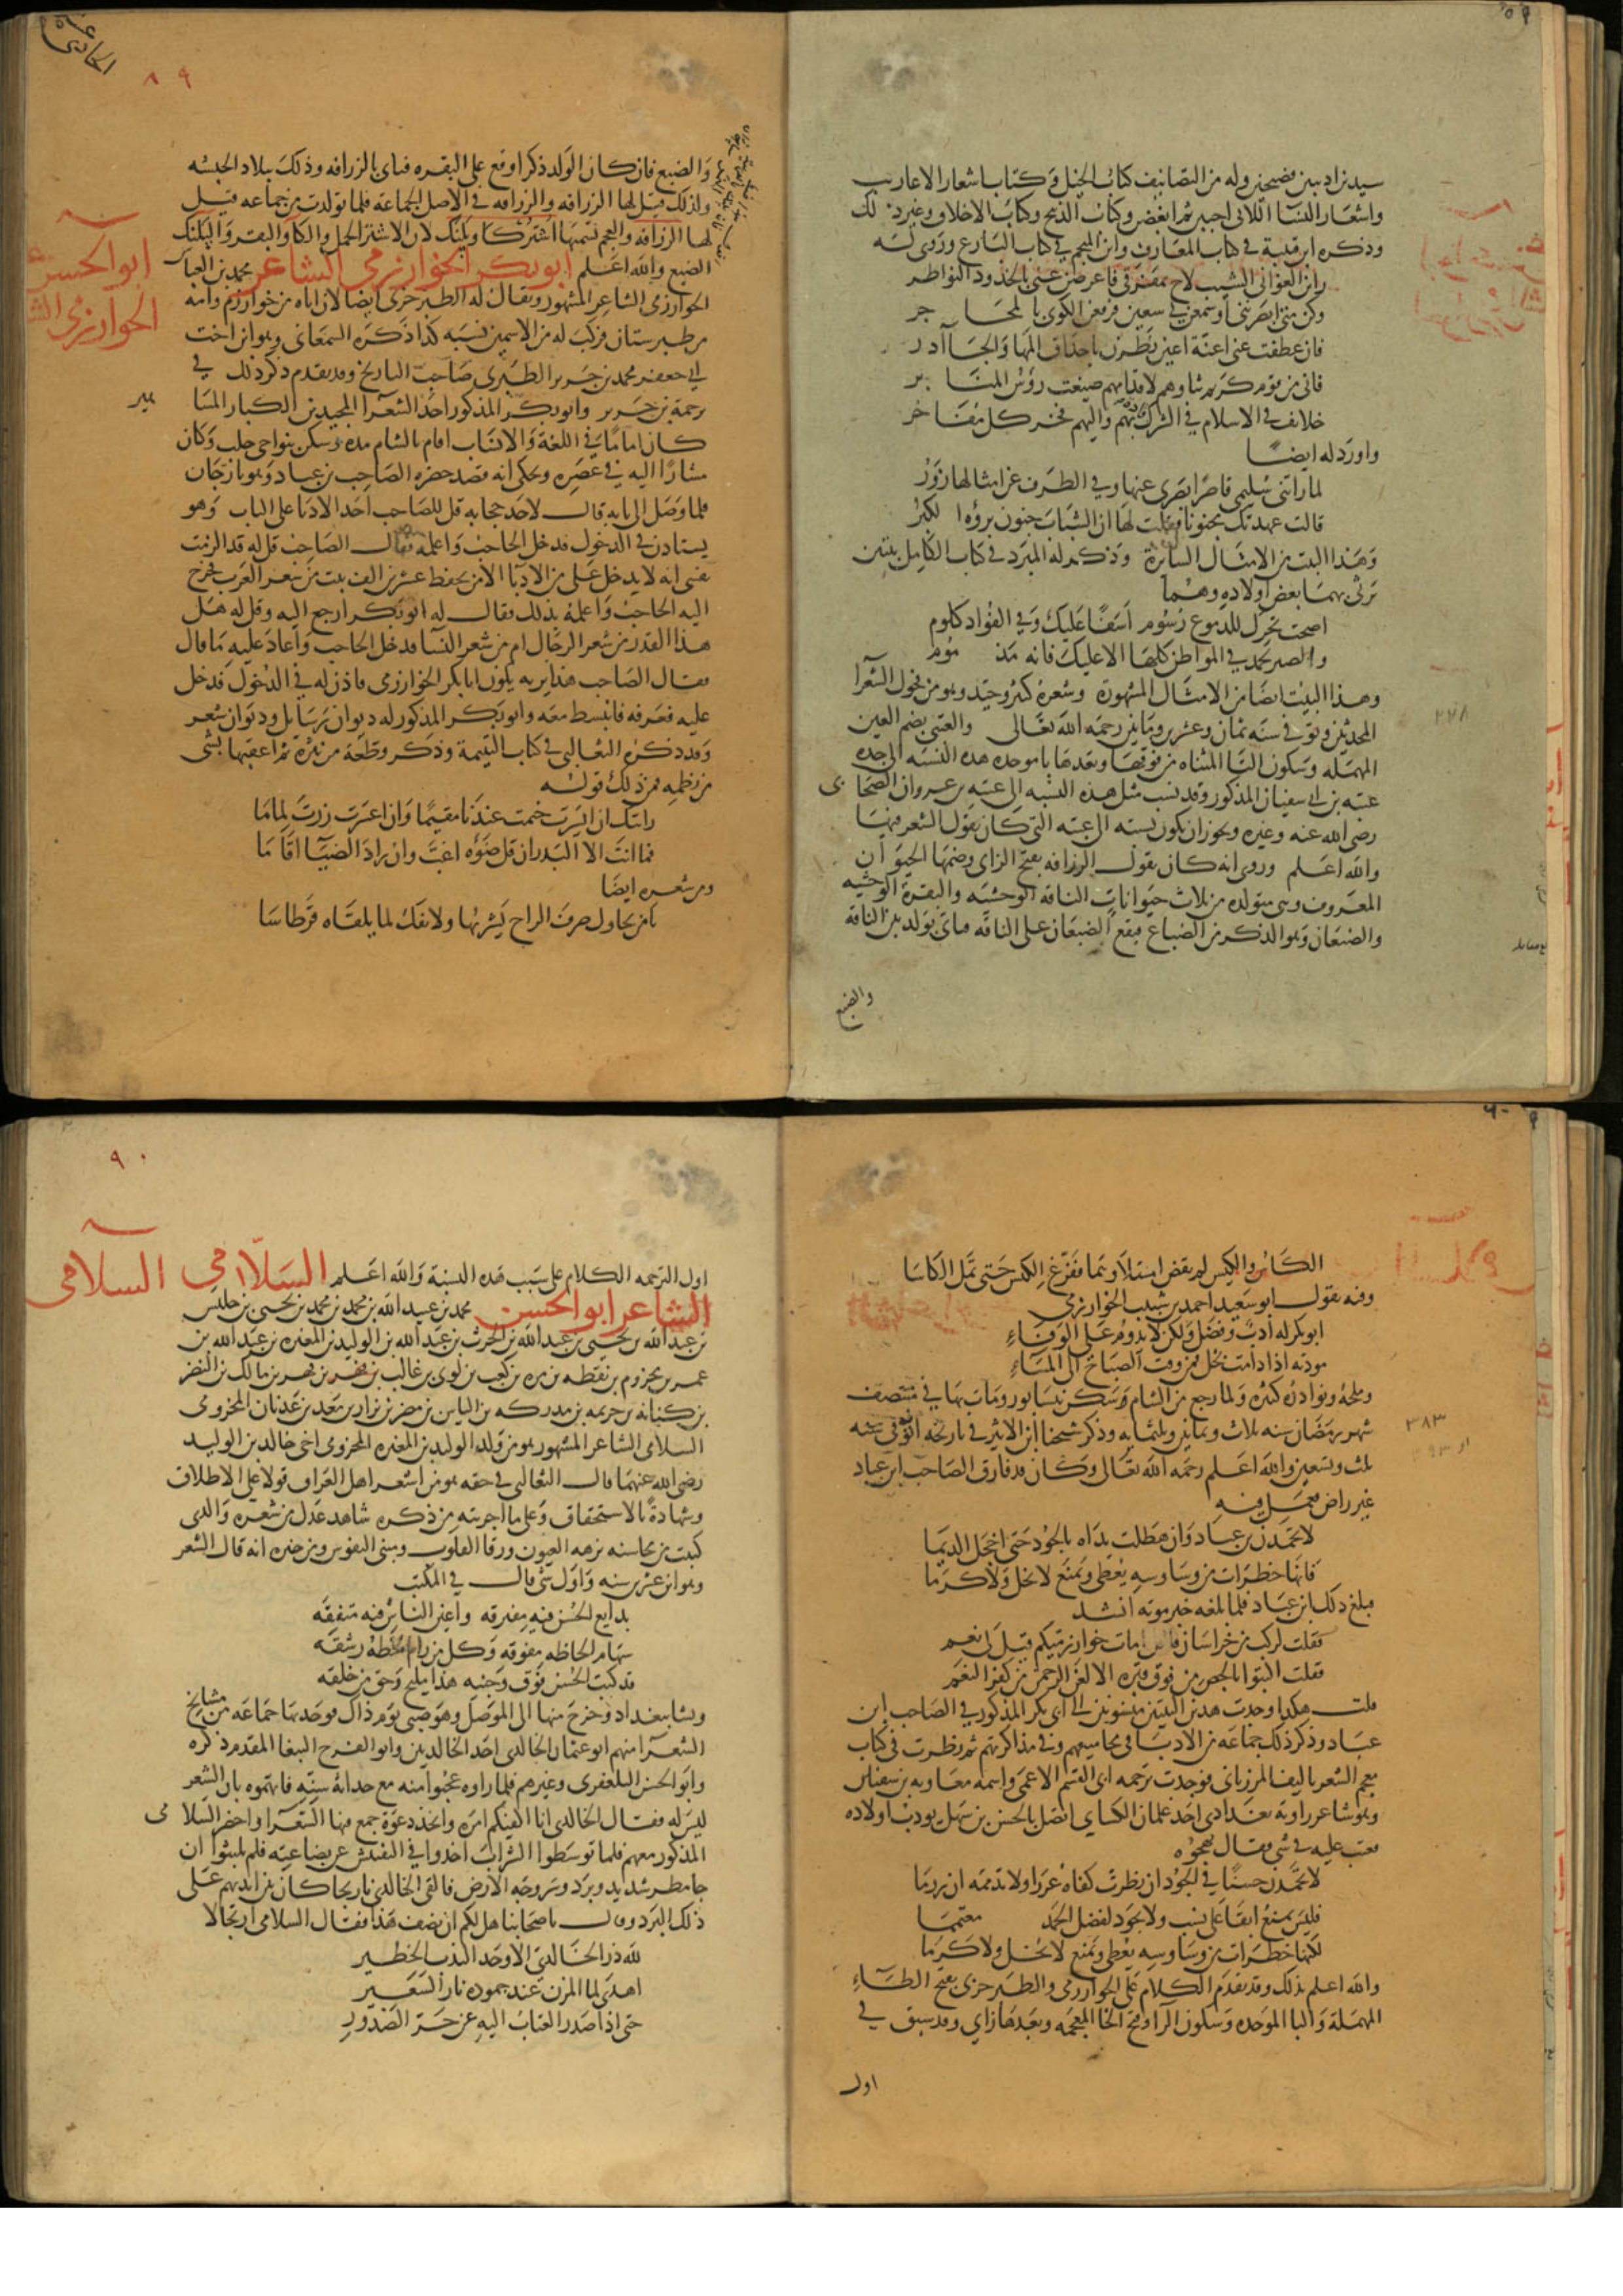 سيدين اديبين فصيحين وله من التصانيف كتاب الخيل وكتاب اشعار الاعاريب
واشعار النسا اللاتي احببن ثم ابغضن وكتاب الذبيح وكتاب الاخلاق وغير ذلك
وذكره ابن قتيبة في كتاب المعارف وابن المنجم في كتاب البارع وروى له
راين الغواني الشيب لاح بمفرقي فاعرضن عني بالخدود النواظر
وكن متى ابصرنني او سمعن بي سعين فرقعن الكوى بالمحاجر
فان عطفت عني اعنة اعين نظرن باحداق المها والجاآدر
فاني من قوم كريم ثناوهم لاقدامهم صيغت رؤس المنابر
خلايف في الاسلام في الشرك قادة بهم واليهم فخر كل مفاخر
واورد له ايضا
لما راتني سليمى قاصرا بصرى عنها وفي الطرف عن امثالها زور
قالت عهدتك مجنونا فقلت لها ان الشباب جنون برؤه الكبر
وهذا البيت من الامثال السائرة وذكر له المبرد في كتاب الكامل بيتين
يرثي بهما بعض اولاده وهما
اضحت بخدي للدموع رسوم اسفا عليك وفي الفواد كلوم
والصبر يحمد في المواطن كلها الا عليك فانه مذموم
وهذا البيت ايضا من الامثال المشهورة وشعره كثير وجيد وهو من فحول الشعرا
المحدثين وتوفي سنه ثمان وعشرين ومايتين رحمه الله تعالى والعتبي بضم العين
المهمله وسكون التا المثناه من فوقها وبعدها با موحده هذه النسبه الى جده
عتبه بن ابي سفيان المذكور وقد نسب مثل هذه النسبه الى عتبه بن غزوان الصحابى
رضى الله عنه وغيره ويجوز ان يكون نسبته الى عتبه التي كان يقول الشعر فيها
والله اعلم وروى انه كان يقول الزرافه بفتح الزاى وضمها الحيوان
المعروف وهي متولده من ثلاث حيوانات الناقه الوحشيه والبقرة الوحشيه
والضبعان وهو الذكر من الضباع فيقع الضبعان على الناقه فياتي بولد بين الناقه
والضبع
٢٢٨
٨٩
والضبع فان كان الولد ذكرا وقع على البقره فياتي بالزرافه وذلك ببلاد الحبشه
ولذلك قيل لها الزرافه والزرافه في الاصل الجماعه فلما تولدت من جماعه قيل
لها الزرافه والعجم تسميها اشتركاوبلنك لان الاشتر الجمل والكاو البقر والبلنك
الضبع والله اعلم ابو بكر الخوارزمي الشاعر محمد بن العباس
الخوارزمى الشاعر المشهور ويقال له الطبرخزي ايضا لان اباه من خوارزم وامه
من طبرستان فركب له من الاسمين نسبه كذا ذكره السمعاني وهو ابن اخت
ابي جعفر محمد بن جرير الطبرى صاحب التاريخ وقد تقدم ذكر ذلك في
ترجمة بن جرير وابو بكر المذكور احد الشعرا المجيدين الكبار المشاهير
كان اماما في اللغة والانساب اقام بالشام مده وسكن بنواحي حلب وكان
مشارا اليه في عصره ويحكى انه قصد حضره الصاحب بن عباد وهو بارجان
فلما وصل الى بابه قال لاحد حجابه قل للصاحب احد الادبا على الباب وهو
يستاذن في الدخول فدخل الحاجب واعلمه فقال الصاحب قل له قد الزمت
نفسي انه لا يدخل على من الادبا الا من يحفظ عشرين الف بيت من شعر العرب فخرج
اليه الحاجب واعلمه بذلك فقال له ابو بكر ارجع اليه وقل له هل
هذا القدر من شعر الرجال ام من شعر النسا فدخل الحاجب واعاد عليه ما قال
فقال الصاحب هذا يريد يكون ابا بكر الخوارزمى فاذن له في الدخول فدخل
عليه فعرفه فانبسط معه وابو بكر المذكور له ديوان رسايل وديوان شعر
وقد ذكره الثعالبي في كتاب اليتيمة وذكر قطعة من نثره ثم اعقبها بشى
من نظمه فمن ذلك قوله
رايتك ان ايسرت خيمت عندنا مقيما وان اعسرت زرت لماما
فما انت الا البدر ان قل ضوؤه اغب وان زاد الضيآ اقاما
ومن شعره ايضا
يا من يحاول صرف الراح يشربها ولا يفك لما يلقاه قرطاسا
ابو الحسن
الخوارزمى الشاعر
الكاس والكيس لم يقض امتلاوهما ففرغ الكيس حتى تملا الكاسا
وفيه يقول ابو سعيد احمد بن شبيب الخوارزمي
ابو بكر له ادب وفضل ولكن لا يدوم على الوفاء
مودته اذا دامت لخل فمن وقت الصباح الى المساء
وملحه ونوادره كثيره ولما رجع من الشام وسكن نيسابور ومات بها في منتصف
شهر رمضان سنه ثلاث وثمانين وثلثمايه وذكر شيخنا ابن الاثير في تاريخه انه توفي سنه
ثلث وتسعين والله اعلم رحمه الله تعالى وكان قد فارق الصاحب ابن عباد
غير راض فعمل فيه
لا تحمدن بن عباد وان هطلت يداه بالجود حتى اخجل الديما
فانها خطرات من وساوسه يعطي ويمنع لا بخلا ولا كرما
فبلغ ذلك ابن عباد فلما بلغه خبر موته انشد
فقلت لركب من خراسان قافل امات خوارزميكم قيل لي نعم
فقلت اكتبوا بالجص من فوق قبره الا لعن الرحمن من كفر النعم
قلت هكذا وجدت هذين البيتين منسوبين الى ابى بكر المذكور في الصاحب ابن
عباد وذكر ذلك جماعه من الادبا في مجاميعهم وفي مذاكرتهم ثم نظرت في كتاب
معجم الشعر تاليف المرزبانى فوجدت ترجمه ابى القسم الاعمى واسمه معاويه بن سفيان
وهو شاعر راويه بغدادي احد غلمان الكساي اتصل بالحسن بن سهل يودب اولاده
فعتب عليه في شى فقال يهجوه
لا تحمدن حسنا في الجود ان مطرت كفاه غزرا ولا تذممه ان زرما
فليس يمنع ابقا على نشب ولا يجود لفضل الحمد مغتنما
لكنها خطرات من وساوسه يعطي ويمنع لا بخلا ولا كرما
والله اعلم بذلك وقد تقدم الكلام على الخوارزمي والطبرخزي بفتح الطاء
المهملة والبا الموحده وسكون الرا وفتح الخا المعجمه وبعدها زاي وقد سبق في
اول
٣٨٣
٩٠
اول الترجمه الكلام على سبب هذه النسبة والله اعلم السلامي
السلامى
الشاعر ابو الحسن محمد بن عبيد الله بن محمد بن محمد بن يحيى بن حليس
بن عبد الله بن يحيى بن عبد الله بن الحرث بن عبد الله بن الوليد بن المغيره بن عبد الله بن
عمر بن مخزوم بن يقظه بن مره بن كعب بن لوى بن غالب بن فهر بن مالك بن النضر
بن كنانه بن خزيمه بن مدركه بن الياس بن مضر بن نزار بن معد بن عدنان المخزومى
السلامى الشاعر المشهور هو من ولد الوليد بن المغيره المخزومى اخى خالد بن الوليد
رضى الله عنهما قال الثعالبي في حقه هو من اشعر اهل العراق قولا على الاطلاق
وشهادة بالاستحقاق وعلى ما اجريته من ذكره شاهد عدل من شعره والذى
كتبت من محاسنه نزهه العيون ورقا القلوب ومنى النفوس ومن خبره انه قال الشعر
وهو ابن عشر سنه واول شى قال في المكتب
بدايع الحسن فيه مفترقه واعين الناس فيه متفقه
سهام الحاظه مفوقه وكل من رام لحظه رشقه
قد كتب الحسن فوق وجنته هذا مليح وحق من خلقه
ونشا ببغداد وخرج منها الى الموصل وهو صبى يوم ذاك فوجد بها جماعه من مشايخ
الشعرآ منهم ابو عثمان الخالدى احد الخالديين وابو الفرج الببغا المقدم ذكره
وابو الحسن التلعفرى وغيرهم فلما راوه عجبوا منه مع حداثه سنه فاتهموه بان الشعر
ليس له فقال الخالدى انا اكفيكم امره واتخذ دعوة جمع فيها الشعرآ واحضر السلامى
المذكور معهم فلما توسطوا الشراب اخذوا في التفتيش عن بضاعته فلم يلبثوا ان
جا مطر شديد وبرد وستر وجه الارض فالقى الخالدى نارنجا كان بين ايديهم على
ذلك البرد وقال يا صحابنا هل لكم ان نصف هذا فقال السلامى ارتجالا
لله در الخالدي الاوحد الندب الخطير
اهدى لما المزن عند جموده نار السعير
حتى اذا صدر العتاب اليه عن حر الصدور